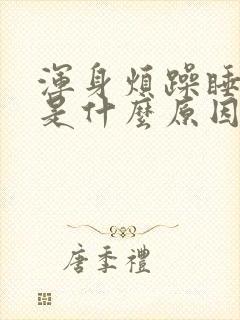 渾身煩躁睡
是什麼原因
唐季禮